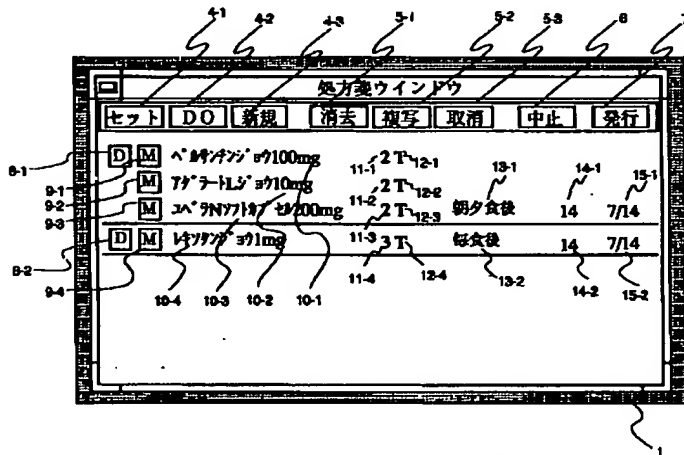 4-1 4-2 4-3 5-1 5-2 5-3 6
処方箋ウインドウ
セット DO 新規 消去 複写 取消 中止 発行
8-1 D M ペルサンチンジョウ100mg 11-1 2 T 12-1 13-1 14-1 15-1
9-1
9-2 M アダラートLジョウ10mg 11-2 2 T 12-2
9-3 M ユベラNソフトカプセル200mg 2 T 12-3 朝夕食後 14 7/14
8-2 D M レキソタンジョウ1mg 11-3 3 T 毎食後 14 7/14
9-4 10-4 10-3 10-2 10-1 11-4 12-4 13-2 14-2 15-2
1